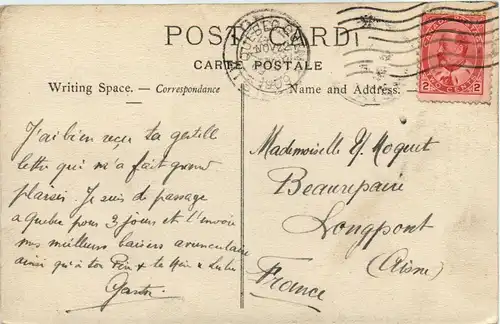 POST CARD
CARTE POSTALE
Writing Space. — Correspondance
Name and Address. —
QUEBEC
NOV 22
2 CENTS 2
J'ai bien reçu ta gentille
lettre qui m'a fait grand
plaisir. Je suis de passage
a Quebec pour 3 jours et t'envoie
mes meilleurs baisers
ainsi qu'à ton
Gaston
Mademoiselle Y. Hoquet
Beaurepaire
Longpont
(Aisne)
France